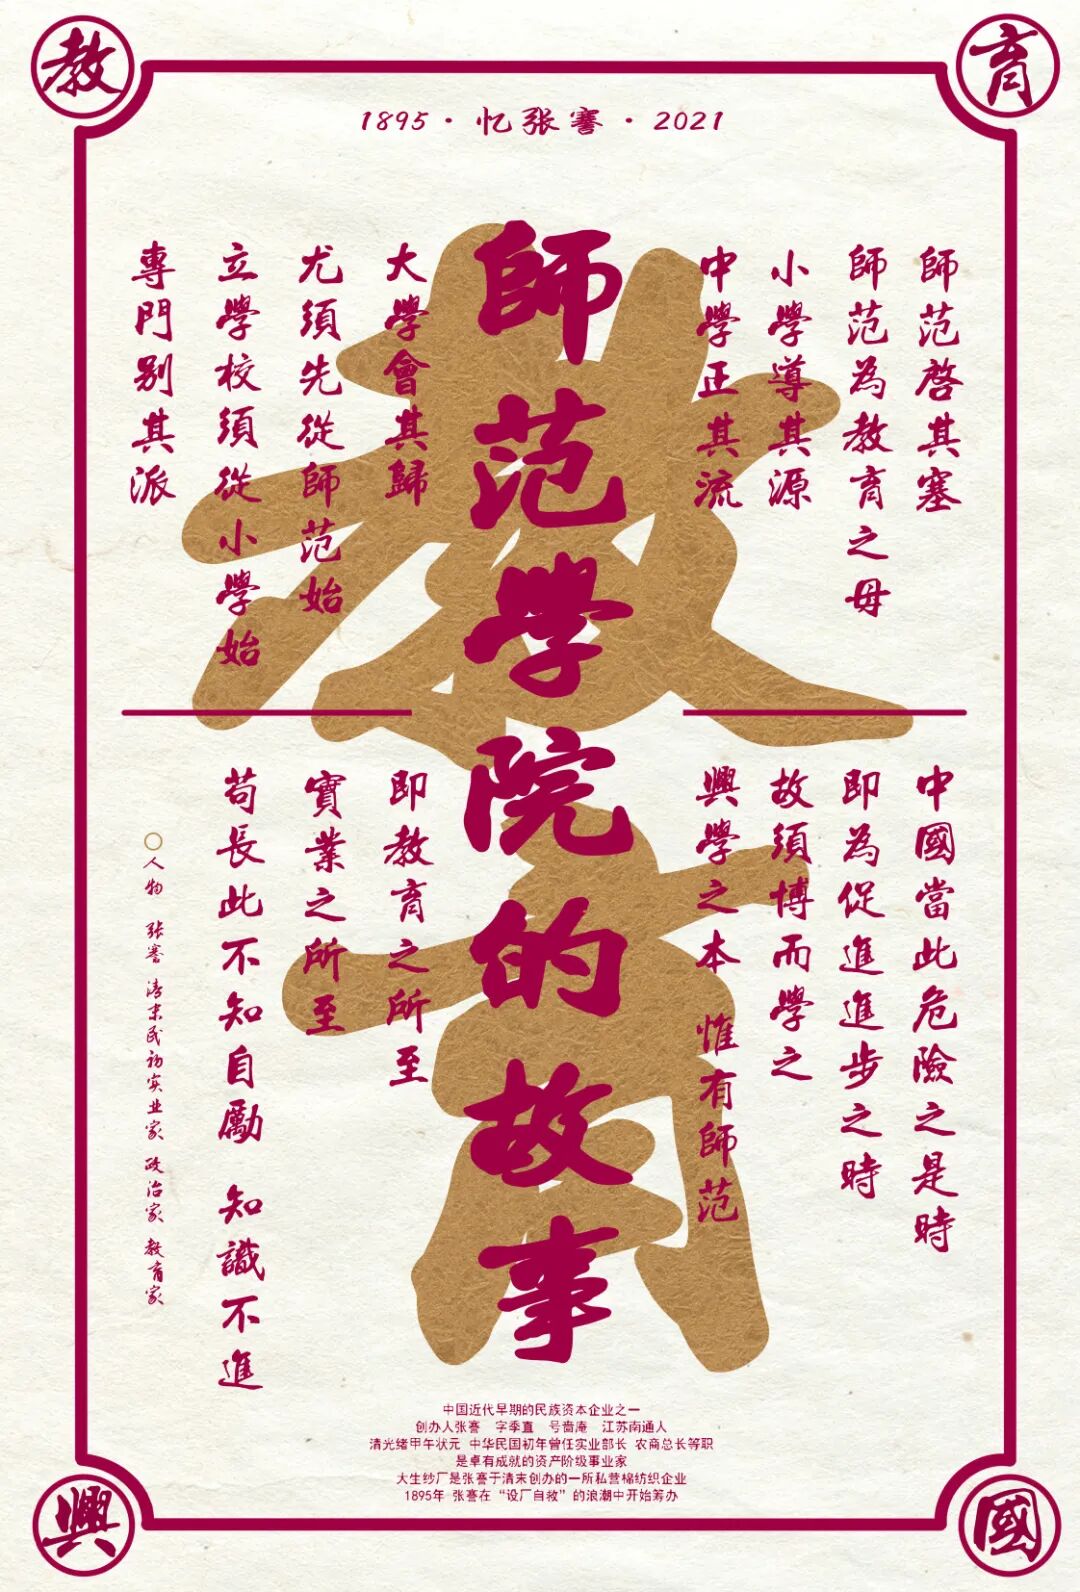 教
育
1895·忆张謇·2021
師范啓其塞
師范為教育之母
小學導其源
中學正其流
師范学院的故事
大學會其歸
尤須先從師范始
立學校須從小學始
專門别其派
中國當此危險之是時
即為促進進步之時
故須博而學之
興學之本 惟有師范
即教育之所至
實業之所至
苟長此不知自勵 知識不進
〇人物 张謇 清末民初实业家 政治家 教育家
教育
中国近代早期的民族资本企业之一
创办人张謇 字季直 号啬庵 江苏南通人
清光绪甲午状元 中华民国初年曾任实业部长 农商总长等职
是卓有成就的资产阶级事业家
大生纱厂是张謇于清末创办的一所私营棉纺织企业
1895年 张謇在“设厂自救”的浪潮中开始筹办
興
國